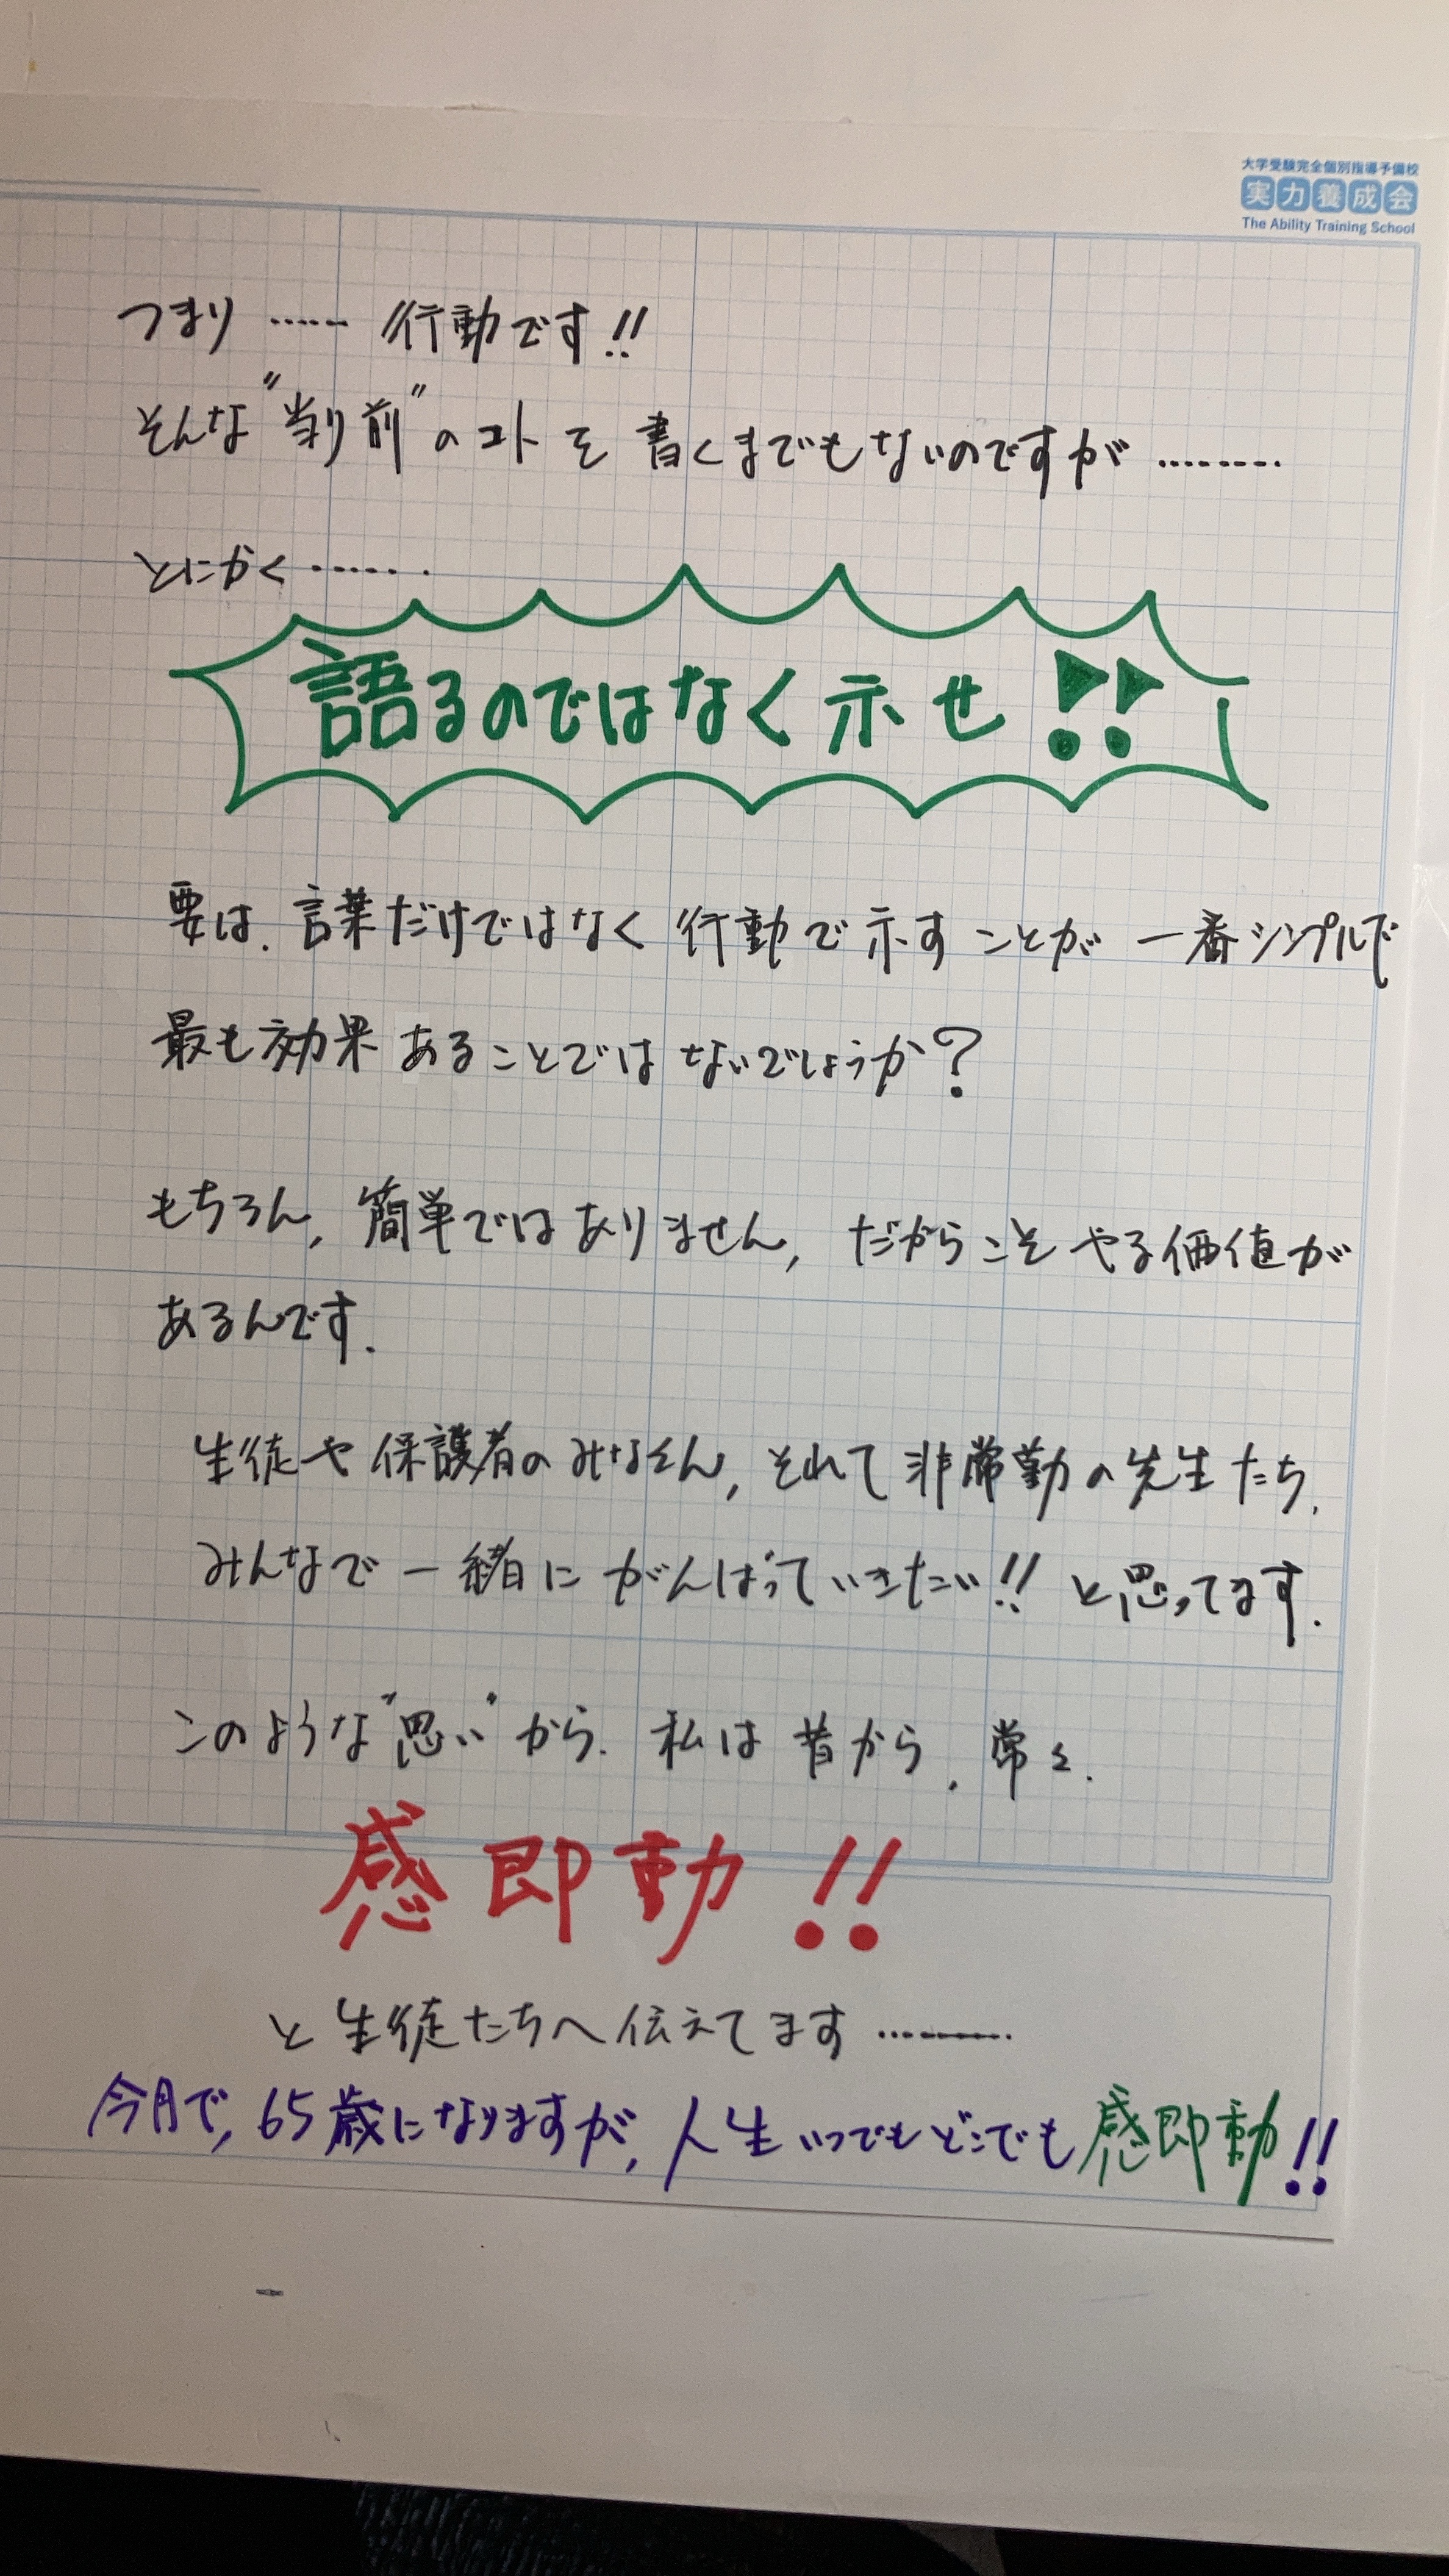 大学受験完全個別指導予備校
実力養成会
The Ability Training School
つまり…… 行動です!!
そんな"当り前"のコトを書くまでもないのですが………
とにかく……
語るのではなく示せ!!
要は、言葉だけではなく行動で示すことが一番シンプルで
最も効果あることではないでしょうか?
もちろん、簡単ではありません、だからこそやる価値が
あるんです.
生徒や保護者のみなさん、それて非常勤の先生たち、
みんなで一緒にがんばっていきたい!!と思ってます.
このような"思い"から、私は昔から、常々、
感即動!!
と生徒たちへ伝えてます………
今月で、65歳になりますが、人生いつでもどこでも感即動!!